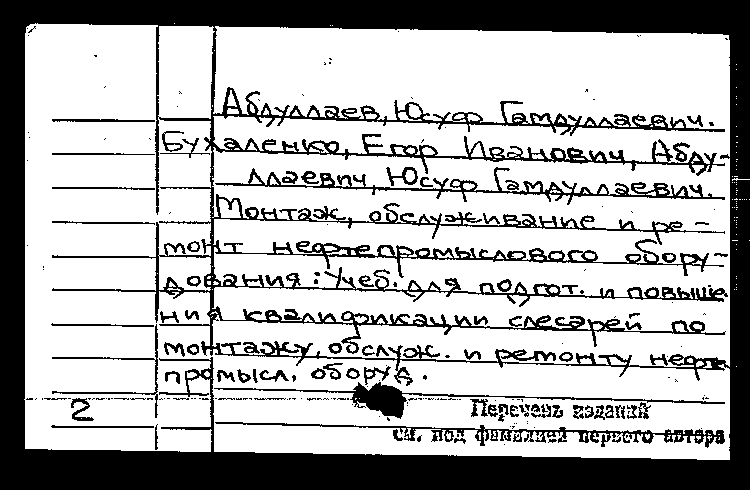 Абдуллаев, Юсуф Гамдуллаевич.
Бухаленко, Егор Иванович, Абду-
ллаевич, Юсуф Гамдуллаевич.
Монтаж, обслуживание и ре-
монт нефтепромыслового обору-
дования: Учеб. для подгот. и повыше
ния квалификации слесарей по
монтажу, обслуж. и ремонту нефте
промысл. оборуд.
2
Перечень изданий
см. под фамилией первого автора